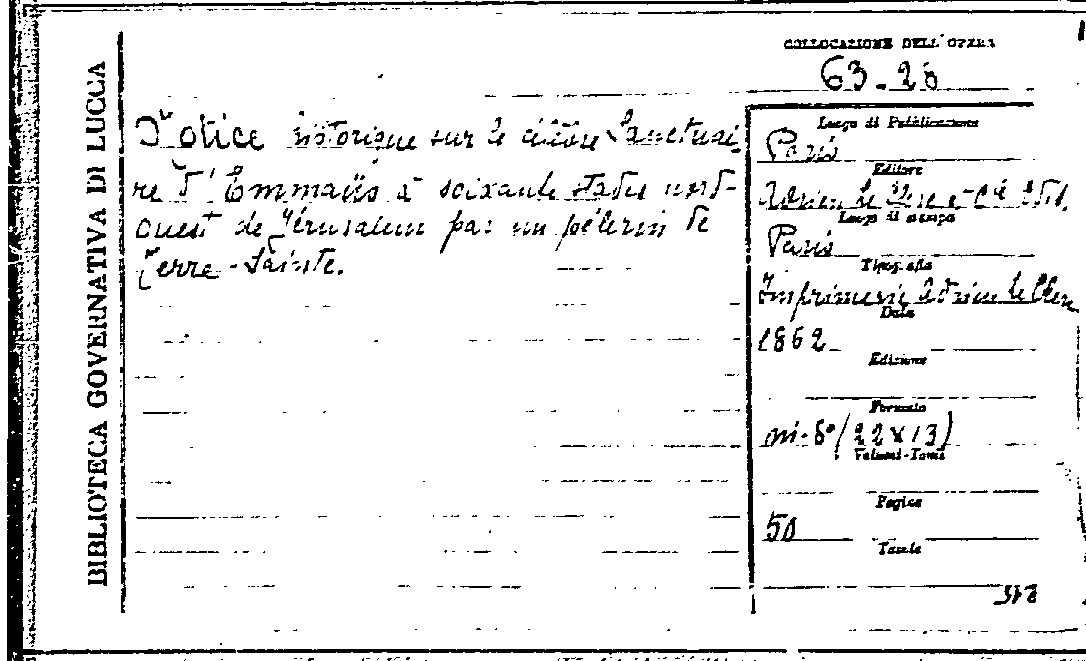 BIBLIOTECA GOVERNATIVA DI LUCCA
COLLOCAZIONE DELL'OPERA
63-26
Notice historique sur le célèbre Sanctuai-
re d'Emmaüs à soixante stades nord-
ouest de Jérusalem par un pélerin de
Terre-Sainte.
Luogo di Pubblicazione
Paris
Editore
Adrien Le Clere e Cie
Luogo di stampa
Paris
Tipografia
Imprimerie Adrien Le Clere
Data
1862
Edizione
Formato
in-8° (22x13)
Volumi-Tomi
Pagine
50
Tavole